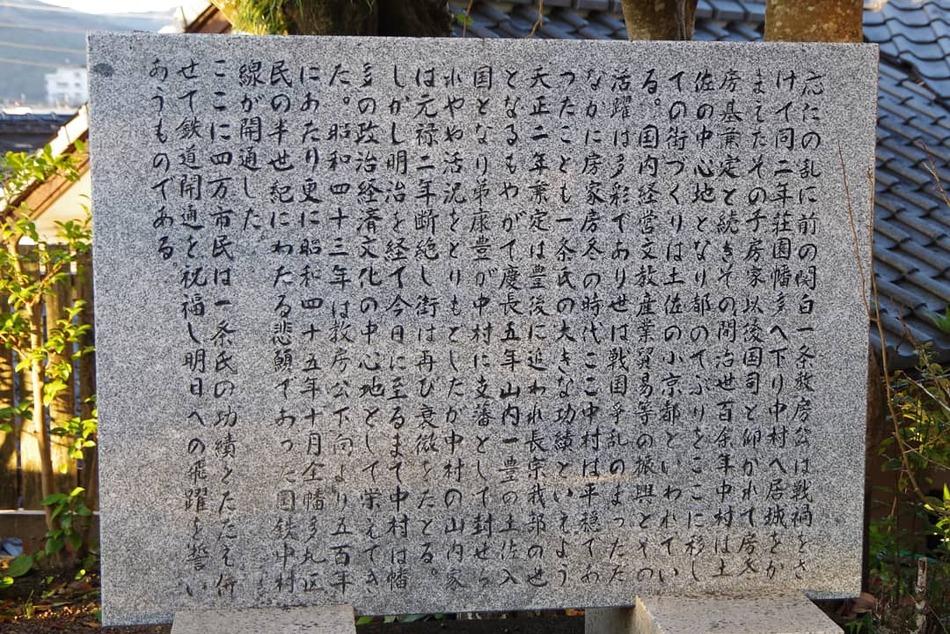 応仁の乱に前の関白一条教房公は戦禍をさ
け一四二年荘園幡多へ下り中村へ居城をか
まえたその子房家以後国司と仰がれて房冬
房基兼定と続きその間治世百余年中村は土
佐の中心地となり都のてぶりをここに移し
ての街づくりは土佐の小京都といわれてい
る。国内経営文教産業貿易等の振興とその
活躍は多彩であり世は戦国争乱のまつただ
なかに房家房冬の時代ここ中村は平穏であ
つたことも一条氏の大きな功績といえよう
天正二年兼定は豊後に追われ長宗我部の世
となるもやがて慶長五年山内一豊の土佐入
国となり弟康豊が中村に支藩として封せら
れやや活況をとりもどしたが中村の山内家
は元禄二年断絶し街は再び衰微をたどる。
しかし明治を経て今日に至るまで中村は幡
多の政治経済文化の中心地として栄えてき
た。昭和四十三年は教房公下向より五百年
にあたり更に昭和四十五年十月全幡多九区
民の半世紀にわたる悲願であった国鉄中村
線が開通した。
ここに四万市民は一条氏の功績をたたえ併
せて鉄道開通を祝福し明日への飛躍を誓い
あうものである